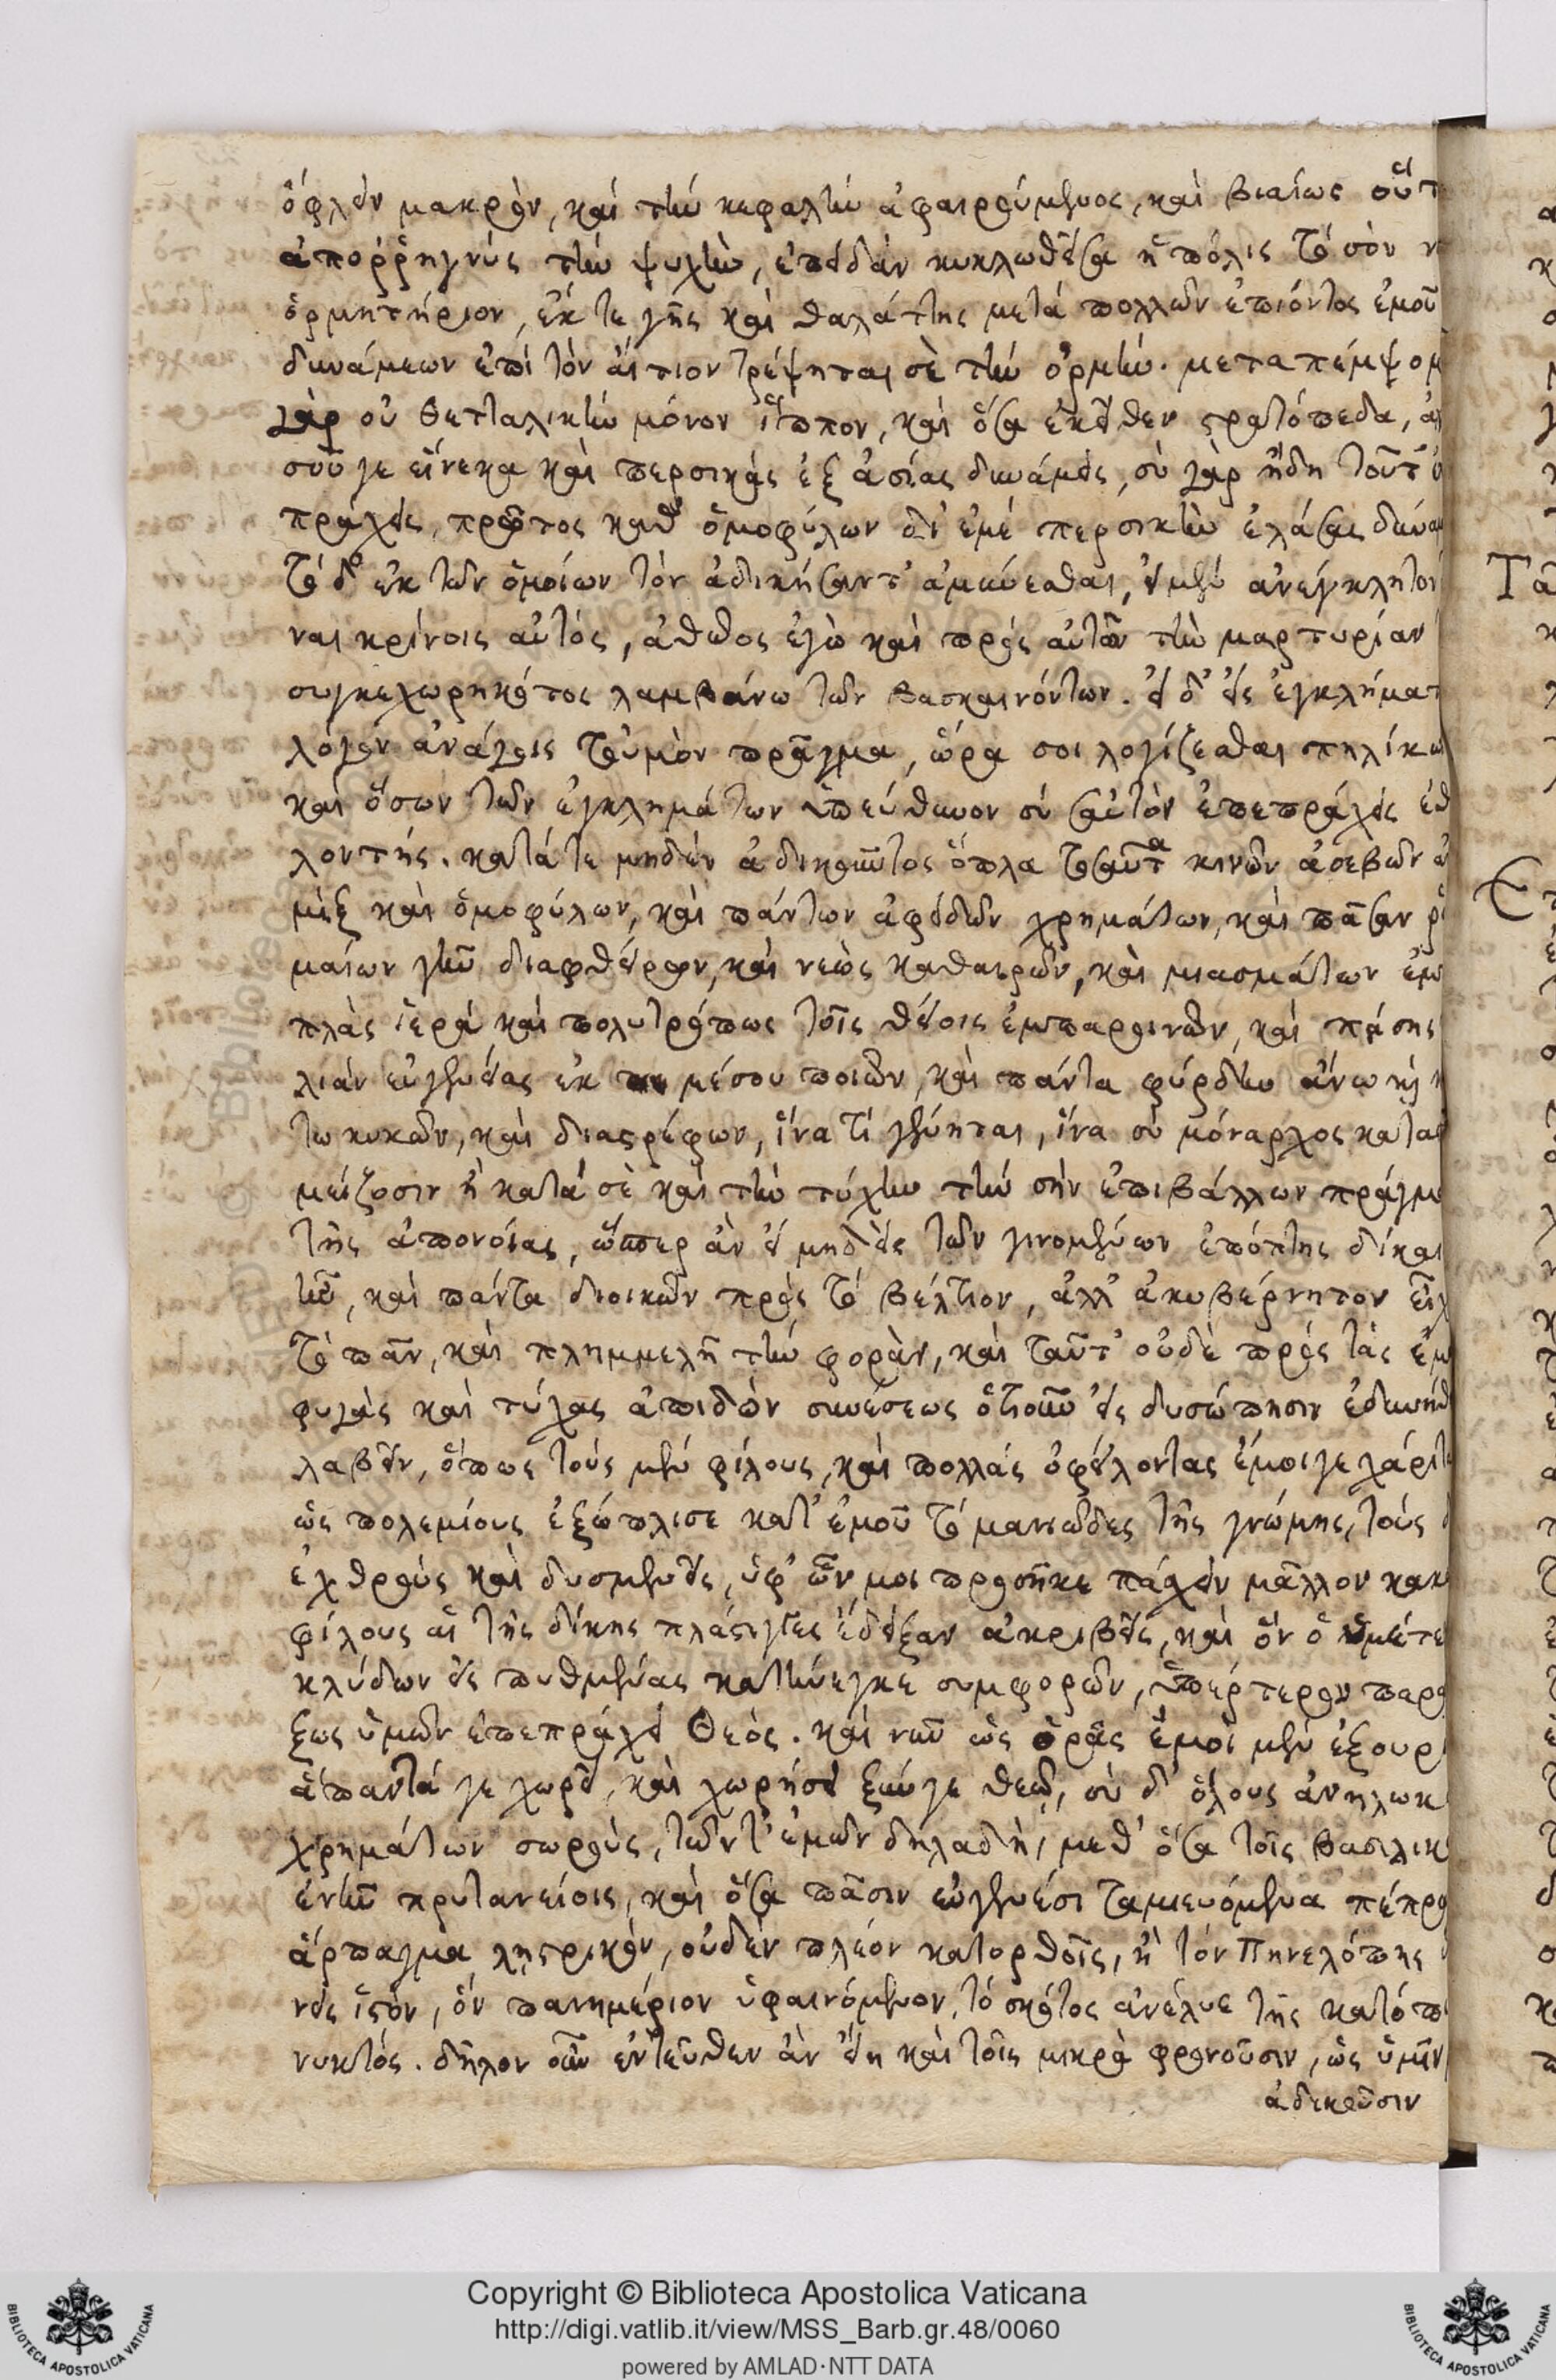 ὄφλειν μακρὰν, καὶ τὴν κεφαλὴν ἀφαιρούμενος, καὶ βιαίως οὕτ
ἀποῤῥηγνὺς τὴν ψυχὴν, ἐπειδὰν κυκλωθεῖσα ἡ πόλις τὸ σὸν
ὁρμητήριον, ἔκ τε γῆς καὶ θαλάττης μετὰ πολλῶν ἐπιόντος ἐμοῦ
δυνάμεων ἐπὶ τὸν αἴτιον τρέψηται σὲ τὴν ὁρμήν. μεταπέμψομ
γὰρ οὐ Θετταλικὴν μόνον ἵππον, καὶ ὅσα ἐκεῖθεν στρατόπεδα,
σοῦ γε εἵνεκα καὶ περσικὰς ἐξ ἀσίας δυνάμεις, σὺ γὰρ ἤδη τοῦτ
πράχεις, πρῶτος καθ' ὁμοφύλων ἐπ' ἐμὲ περσικὴν ἐλάσαι δύνα
τὸ δ' ἐκ τῶν ὁμοίων τὸν ἀδικήσαντ' ἀμύνεσθαι, εἰ μὲν ἀνέγκλητον
ναι κρίνοις αὐτὸς, ἀθῶος ἐγὼ καὶ πρὸς αὐτῶν τὴν μαρτυρίαν
συγκεχωρηκότος λαμβάνω τῶν βασκαινόντων. εἰ δ' εἰς ἐγκλήματ
λόγον ἀνάγεις τοὐμὸν πρᾶγμα, ὥρα σοι λογίζεσθαι πηλίκω
καὶ ὅσων τῶν ἐγκλημάτων ὑπεύθυνον σὺ σαυτὸν ἐπεπράχεις ἐθ
λοντής. κατά τε μηδὲν ἀδικοῦντος ὅπλα τοσαῦτα κινῶν ἀσεβῶν
μὶξ καὶ ὁμοφύλων, καὶ πάντων ἀφειδῶν χρημάτων, καὶ πᾶσαν ῥ
μαίων γῆν διαφθείρων, καὶ νεὼς καθαιρῶν, καὶ μιασμάτων ἐμ
πλὰς ἱερὰ καὶ πολυτρόπως τοῖς θείοις ἐμπαροινῶν, καὶ πάσης
λιὰν εὐγενείας ἐκ μέσου ποιῶν, καὶ πάντα φύρδην ἄνω καὶ κ
τω κυκῶν, καὶ διαστρέφων, ἵνα τί γένηται, ἵνα σὺ μόναρχος κατασ
μείζοσιν ἢ κατὰ σὲ καὶ τὴν τύχην τὴν σὴν ἐπιβάλλων πράγμ
τῆς ἀπονοίας, ὥσπερ ἂν εἰ μηδεὶς τῶν γινομένων ἐπόπτης δίκαι
ἦν, καὶ πάντα διοικῶν πρὸς τὸ βέλτιον, ἀλλ' ἀκυβέρνητον εἶχ
τὸ πᾶν, καὶ πλημμελῆ τὴν φορὰν, καὶ ταῦτ' οὐδὲ πρὸς τὰς ἐμ
φυγὰς καὶ τύχας ἀπιδὼν συνέσεως ὁτιοῦν εἰς δυσώπησιν ἐδυνήθ
λαβεῖν, ὅπως τοὺς μὲν φίλους, καὶ πολλὰς ὀφείλοντας ἔμοιγε χάριτ
ὡς πολεμίους ἐξώπλισε κατ' ἐμοῦ τὸ μανιῶδες τῆς γνώμης, τοὺς δ
ἐχθροὺς καὶ δυσμενεῖς, ὑφ' ὧν μοι προσῆκε πάσχειν μᾶλλον κακ
φίλους αἱ τῆς δίκης πλάστιγγες ἔδειξαν ἀκριβεῖς, καὶ ὃν ὁ ὑμέτε
κλύδων εἰς πυθμένας κατήνεγκε συμφορῶν, ὑπέρτερον παρα
ξως ὑμῶν ἐπεπράχει Θεός. καὶ νῦν ὡς ὁρᾷς ἐμοὶ μὲν ἐξουρ
ἅπαντά γε χωρεῖ, καὶ χωρήσει ξύν γε θεῷ, σὺ δ' ὅλους ἀνηλωκ
χρημάτων σωροὺς, τῶν τ' ἐμῶν δηλαδὴ, μεθ' ὅσα τοῖς βασιλικ
ἐνῆν πρυτανείοις, καὶ ὅσα πᾶσιν εὐγενέσι ταμιευόμενα πέπρα
ἅρπαγμα λῃστρικὸν, οὐδὲν πλέον κατορθοῖς, ἢ τὸν Πηνελόπης
νης ἱστὸν, ὃν πανημέριον ὑφαινόμενον, τὸ σκότος ἀνέλυε τῆς κατόπ
νυκτός. δῆλον οὖν ἐντεῦθεν ἂν εἴη καὶ τοῖς μικρὰ φρονοῦσιν, ὡς ὑμῖν
ἀδικοῦσιν
Copyright © Biblioteca Apostolica Vaticana
http://digi.vatlib.it/view/MSS_Barb.gr.48/0060
powered by AMLAD·NTT DATA